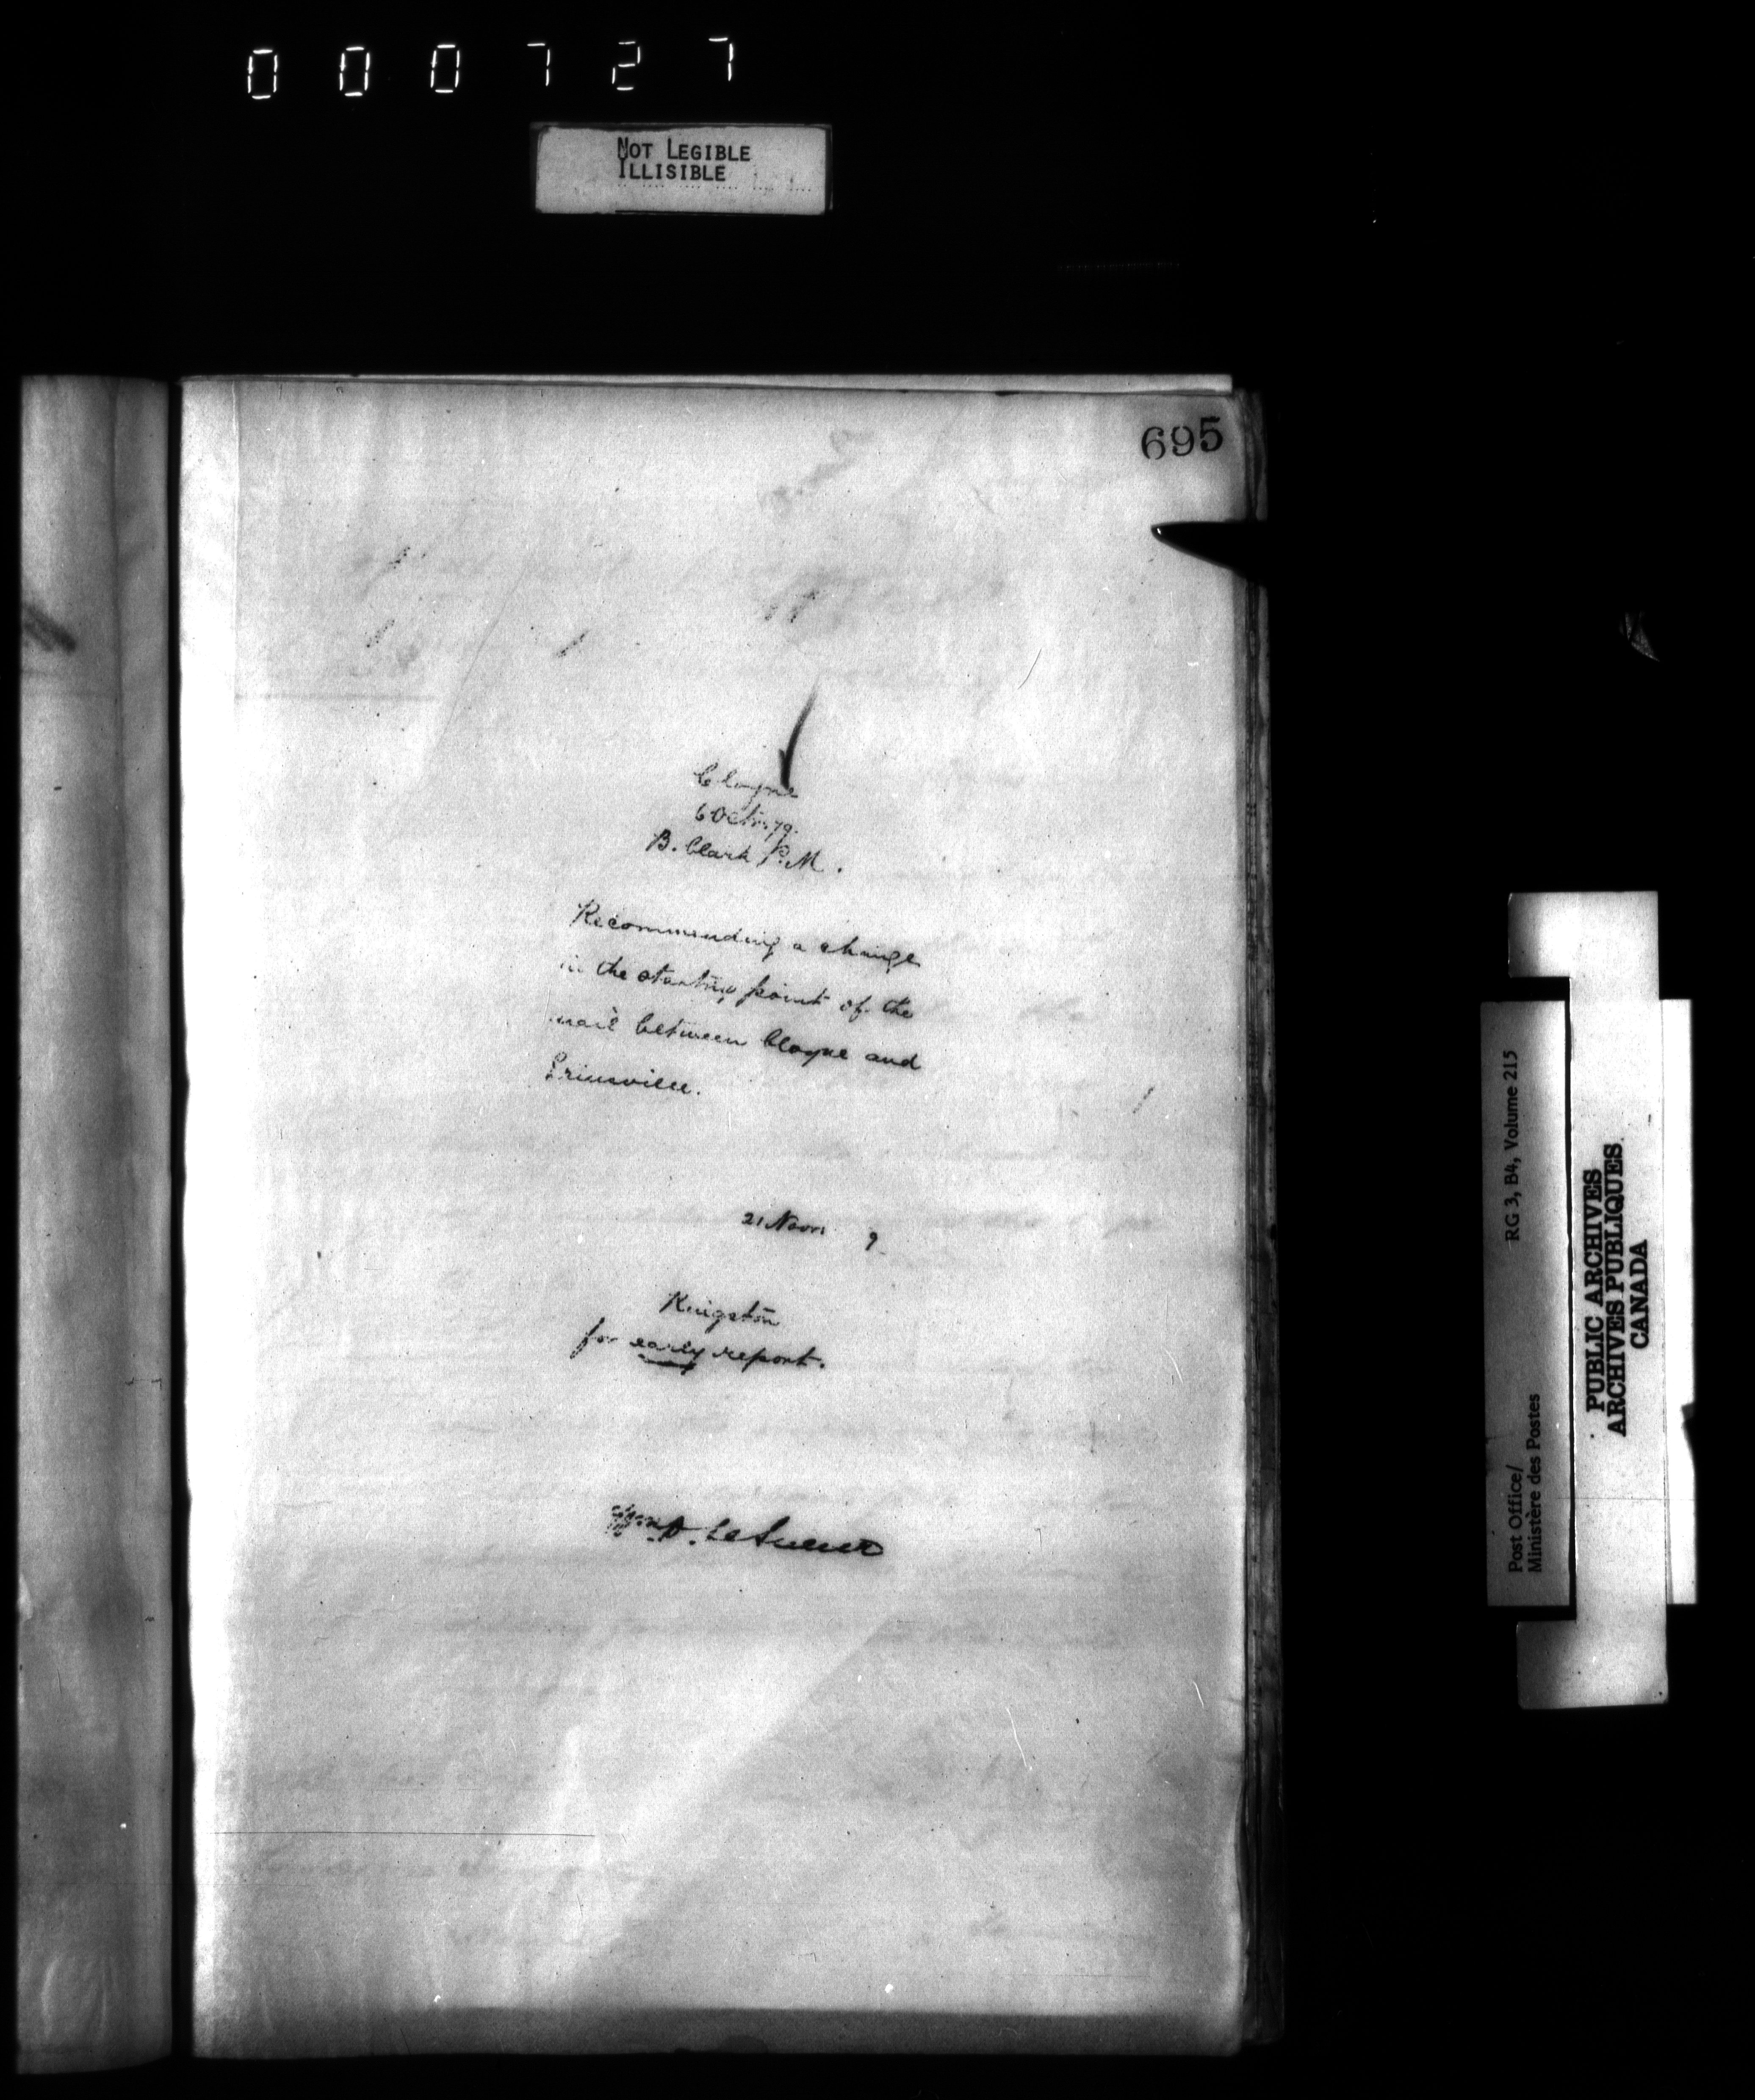 000727
NOT LEGIBLE
ILLISIBLE
695
Cloyne
6 Octr. 79.
B. Clark P.M.
Recommending a change
in the starting point of the
mail between Cloyne and
Erinsville.
21 Novr 9
Kingston
for early report.
Wm. D. LeSueur
Post Office/
Ministère des Postes
RG 3, B4, Volume 215
PUBLIC ARCHIVES
ARCHIVES PUBLIQUES
CANADA